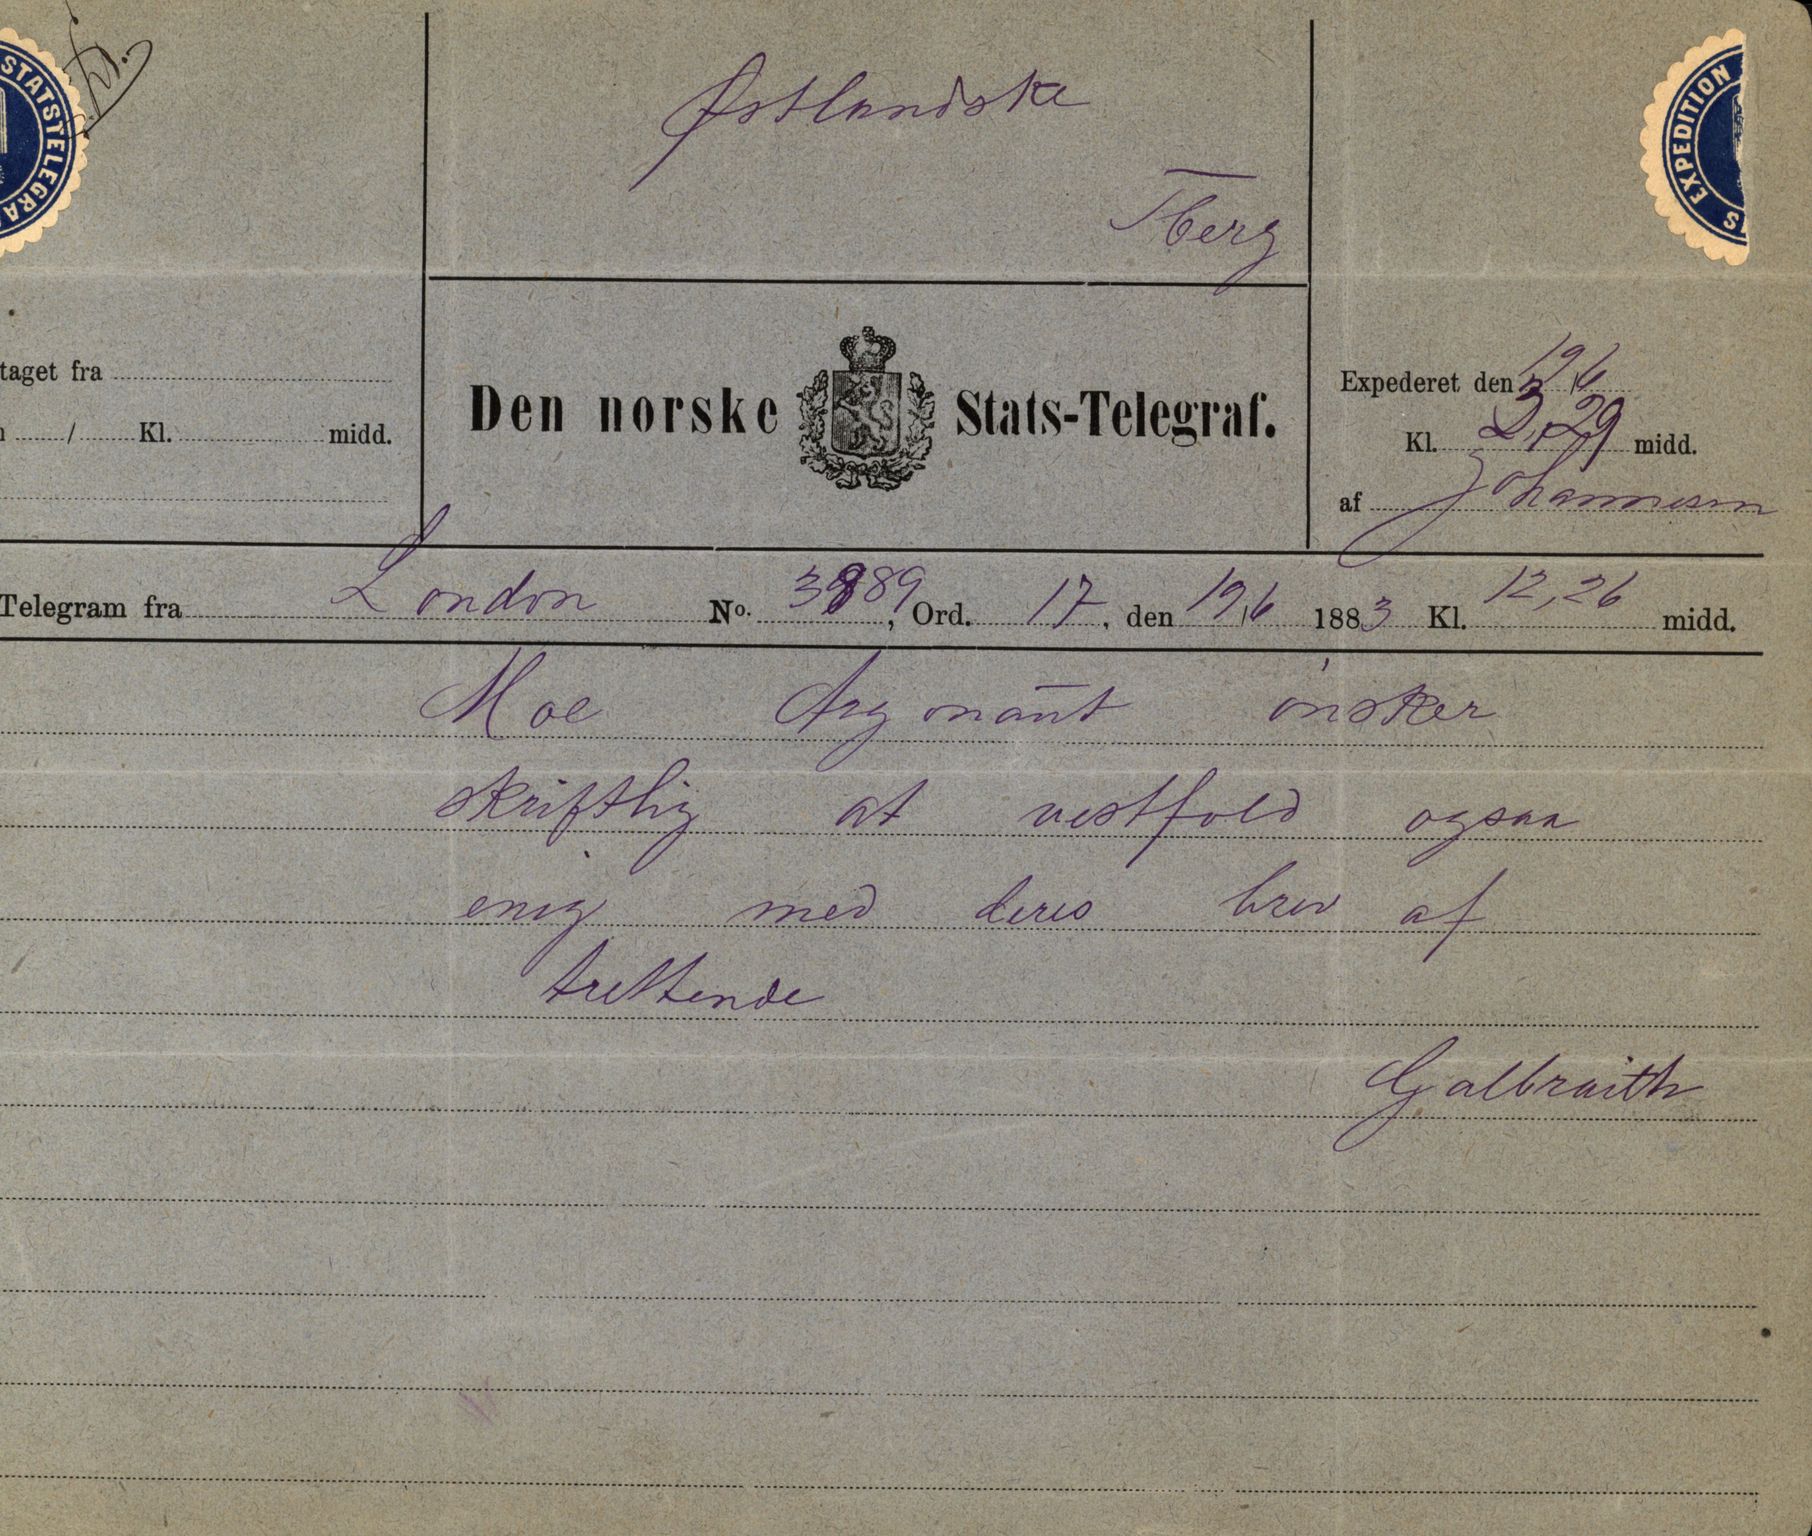 STATSTELEGRA
Østlandske
EXPEDITION S
Tberg
taget fra
Expederet den 19/6
Den norske Stats-Telegraf.
/ Kl. midd.
Kl. 3,29 midd.
af Johannesen
Telegram fra London No. 3889, Ord. 17, den 19/6 1883 Kl. 12,26 midd.
Moe Argonaut önsker
skriftlig at vestfold ogsaa
enig med deres brev af
trettende
Galbraith